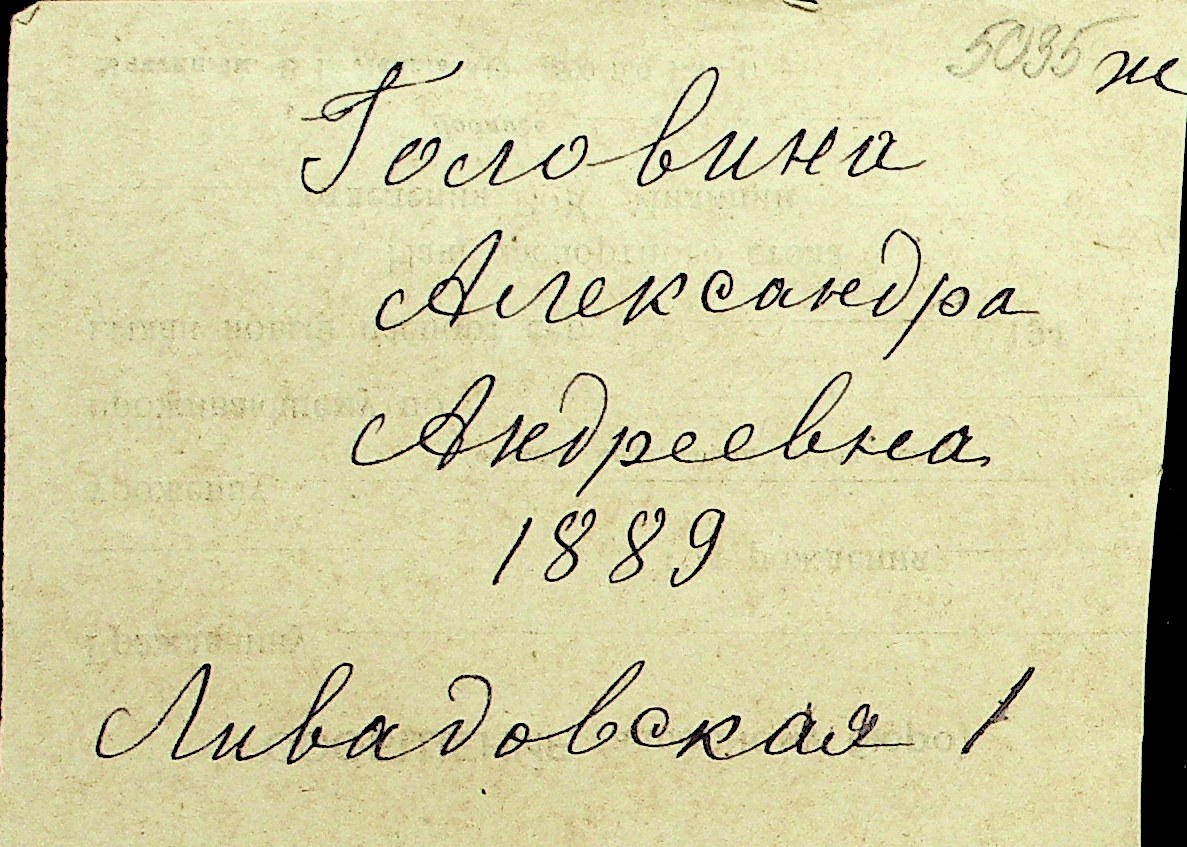 5035 ж
Головина
Александра
Андреевна
1889
Ливадовская 1